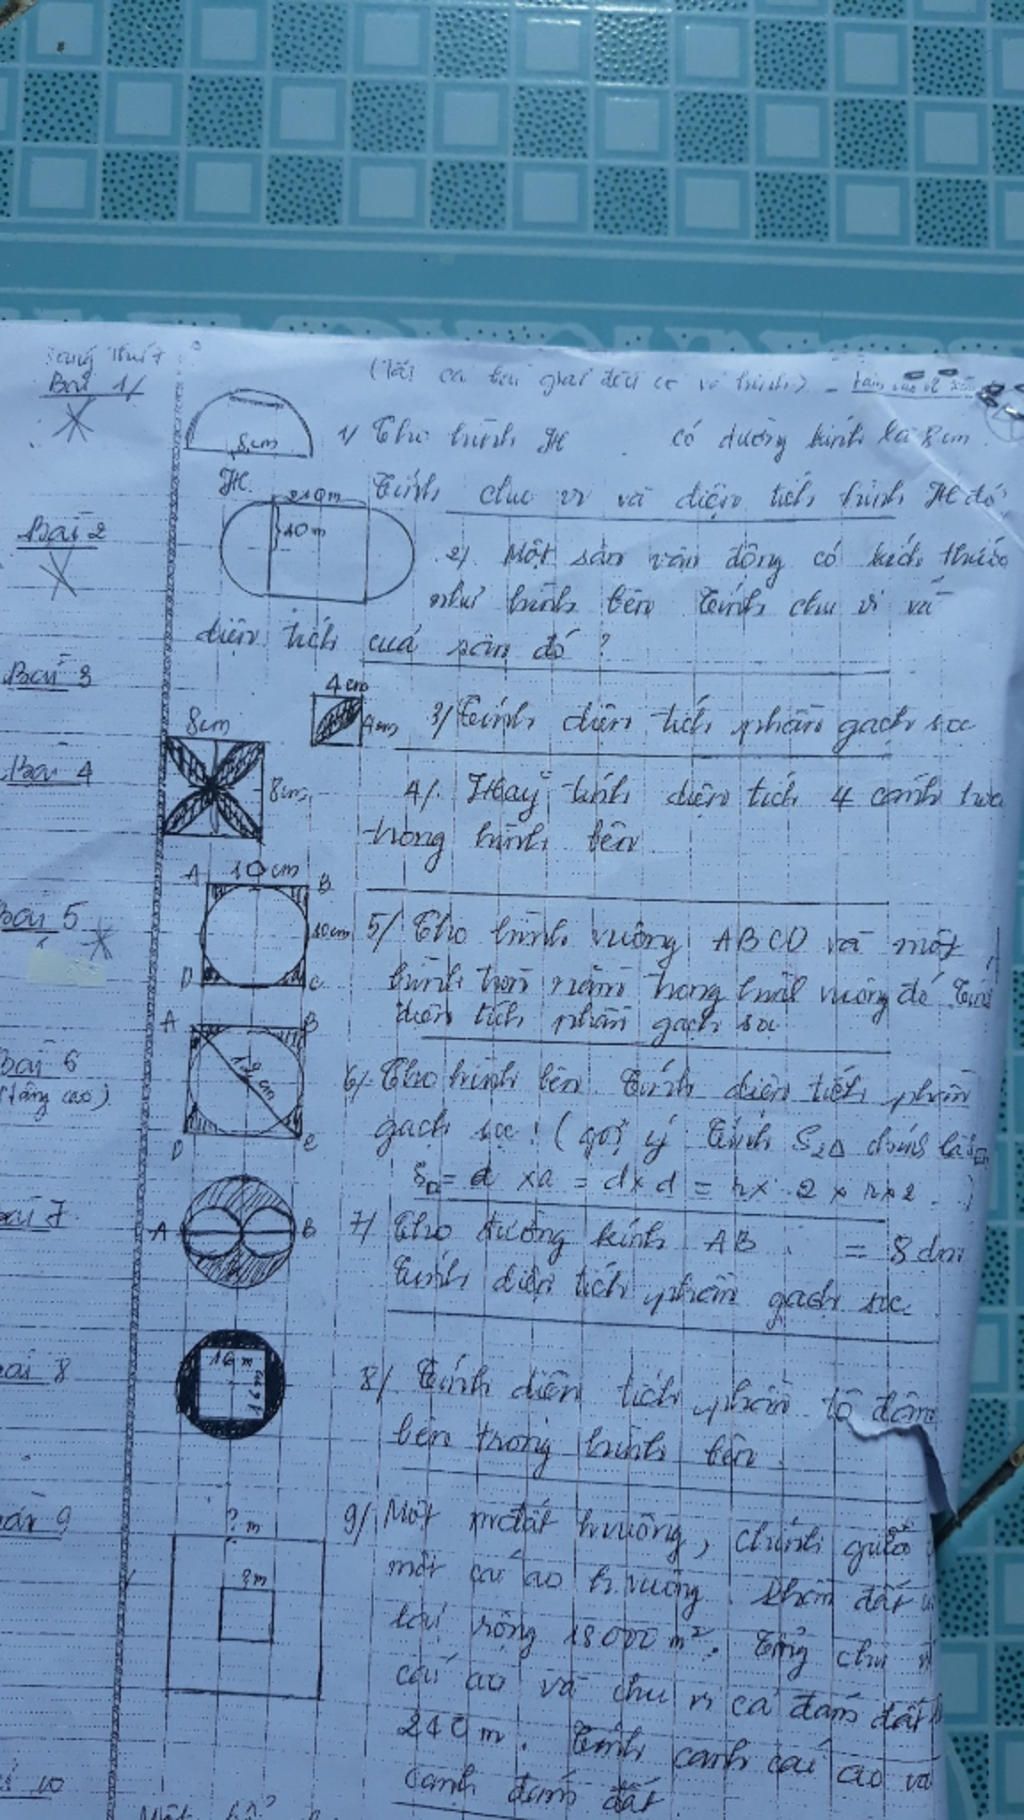 Bài 1/
8cm
1/ Cho hình H có đường kính là 8cm.
H
Tính chu vi và diện tích hình H đó,
Bài 2
10m
2/. Một sân vận động có kích thước
như hình bên Tính chu vi và
diện tích của sân đó ?
Bài 3
4cm
4cm
3/ Tính diện tích phần gạch sọc
Bài 4
8cm
8cm
4/. Hãy tính diện tích 4 cánh
trong hình bên
Bài 5
A 10cm B
10cm
D C
5/ Cho hình vuông ABCD và một
hình tròn nằm trong hình vuông đó
diện tích phần gạch sọc
Bài 6
(Nâng cao)
A B
12cm
D C
6/. Cho hình bên Tính diện tích phần
gạch sọc! (gợi ý Tính S2Δ
S□ = a x a = d x d = r x 2 x r x 2
Bài 7
A B
7/ Cho đường kính AB = 8dm
Tính diện tích phần gạch sọc
Bài 8
16m
8/ Tính diện tích phần tô đậm
bên trong hình bên
Bài 9
? m
?m
9/ Một mđất hvuông, chính giữa
một cái ao h.vuông. Phần đất
lại rộng m². Tổng chu vi
cái ao và chu vi cả đám đất
240m. Tính cạnh cái ao và
cạnh đám đất
10